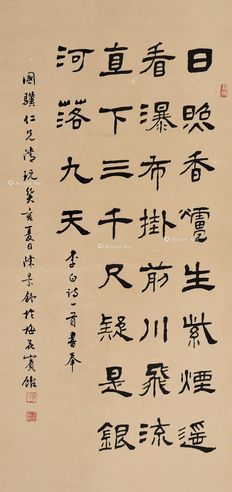 日照香爐生紫煙遙
看瀑布掛前川飛流
直下三千尺疑是銀
河落九天
李白詩一首書奉
國驥仁兄清玩癸亥夏日陳景舒於梅花賓館